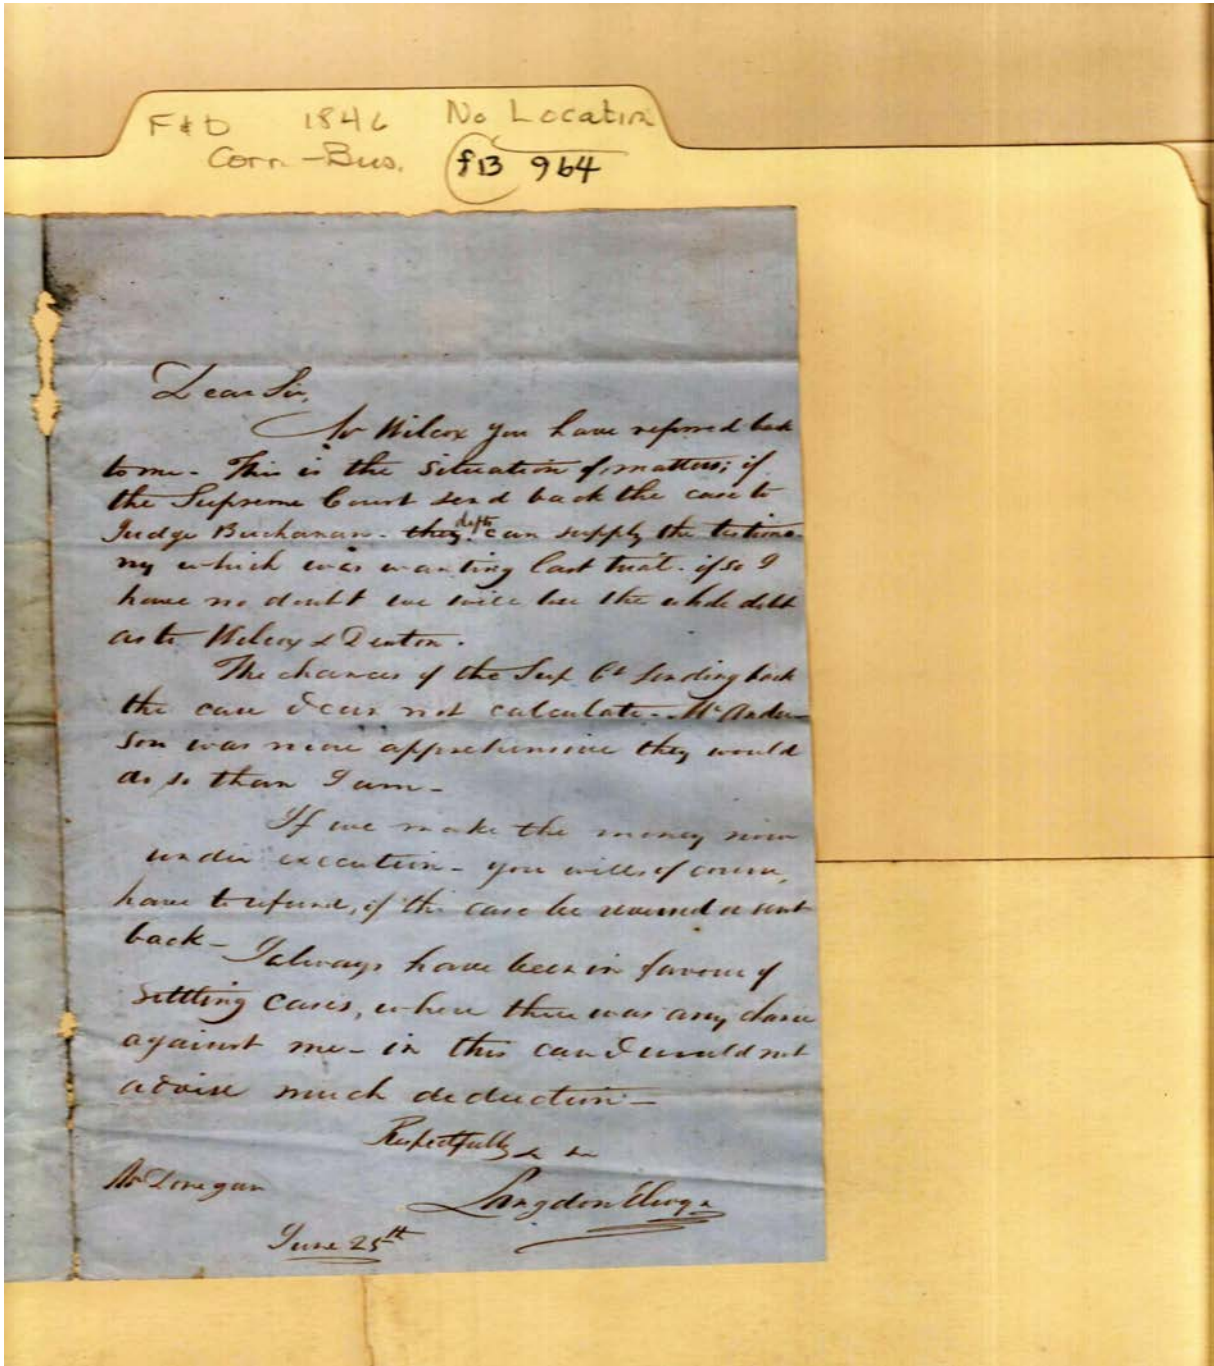 F&D 1846 No Location
Corr - Bus. f13 964
Dear Sir,
Mr Wilcox you have referred back
to me - This is the situation of matters; if
the Supreme Court send back the case to
Judge Buchanan - they defts can supply the testimo-
ny which was wanting last trial. if so I
have no doubt we will lose the whole debt
as to Wilcox & Denton.
The chances of the Sup Ct sending back
the case I can not calculate - Mr Ander-
son was more apprehensive they would
do so than I am -
If we make the money now
under execution - you will, of course,
have to refund, if the case be reversed or sent
back - I always have been in favour of
settling cases, where there was any chance
against me - in this case I would not
advise much deduction -
Respectfully &
Mr Donegan
Langdon
June 25th